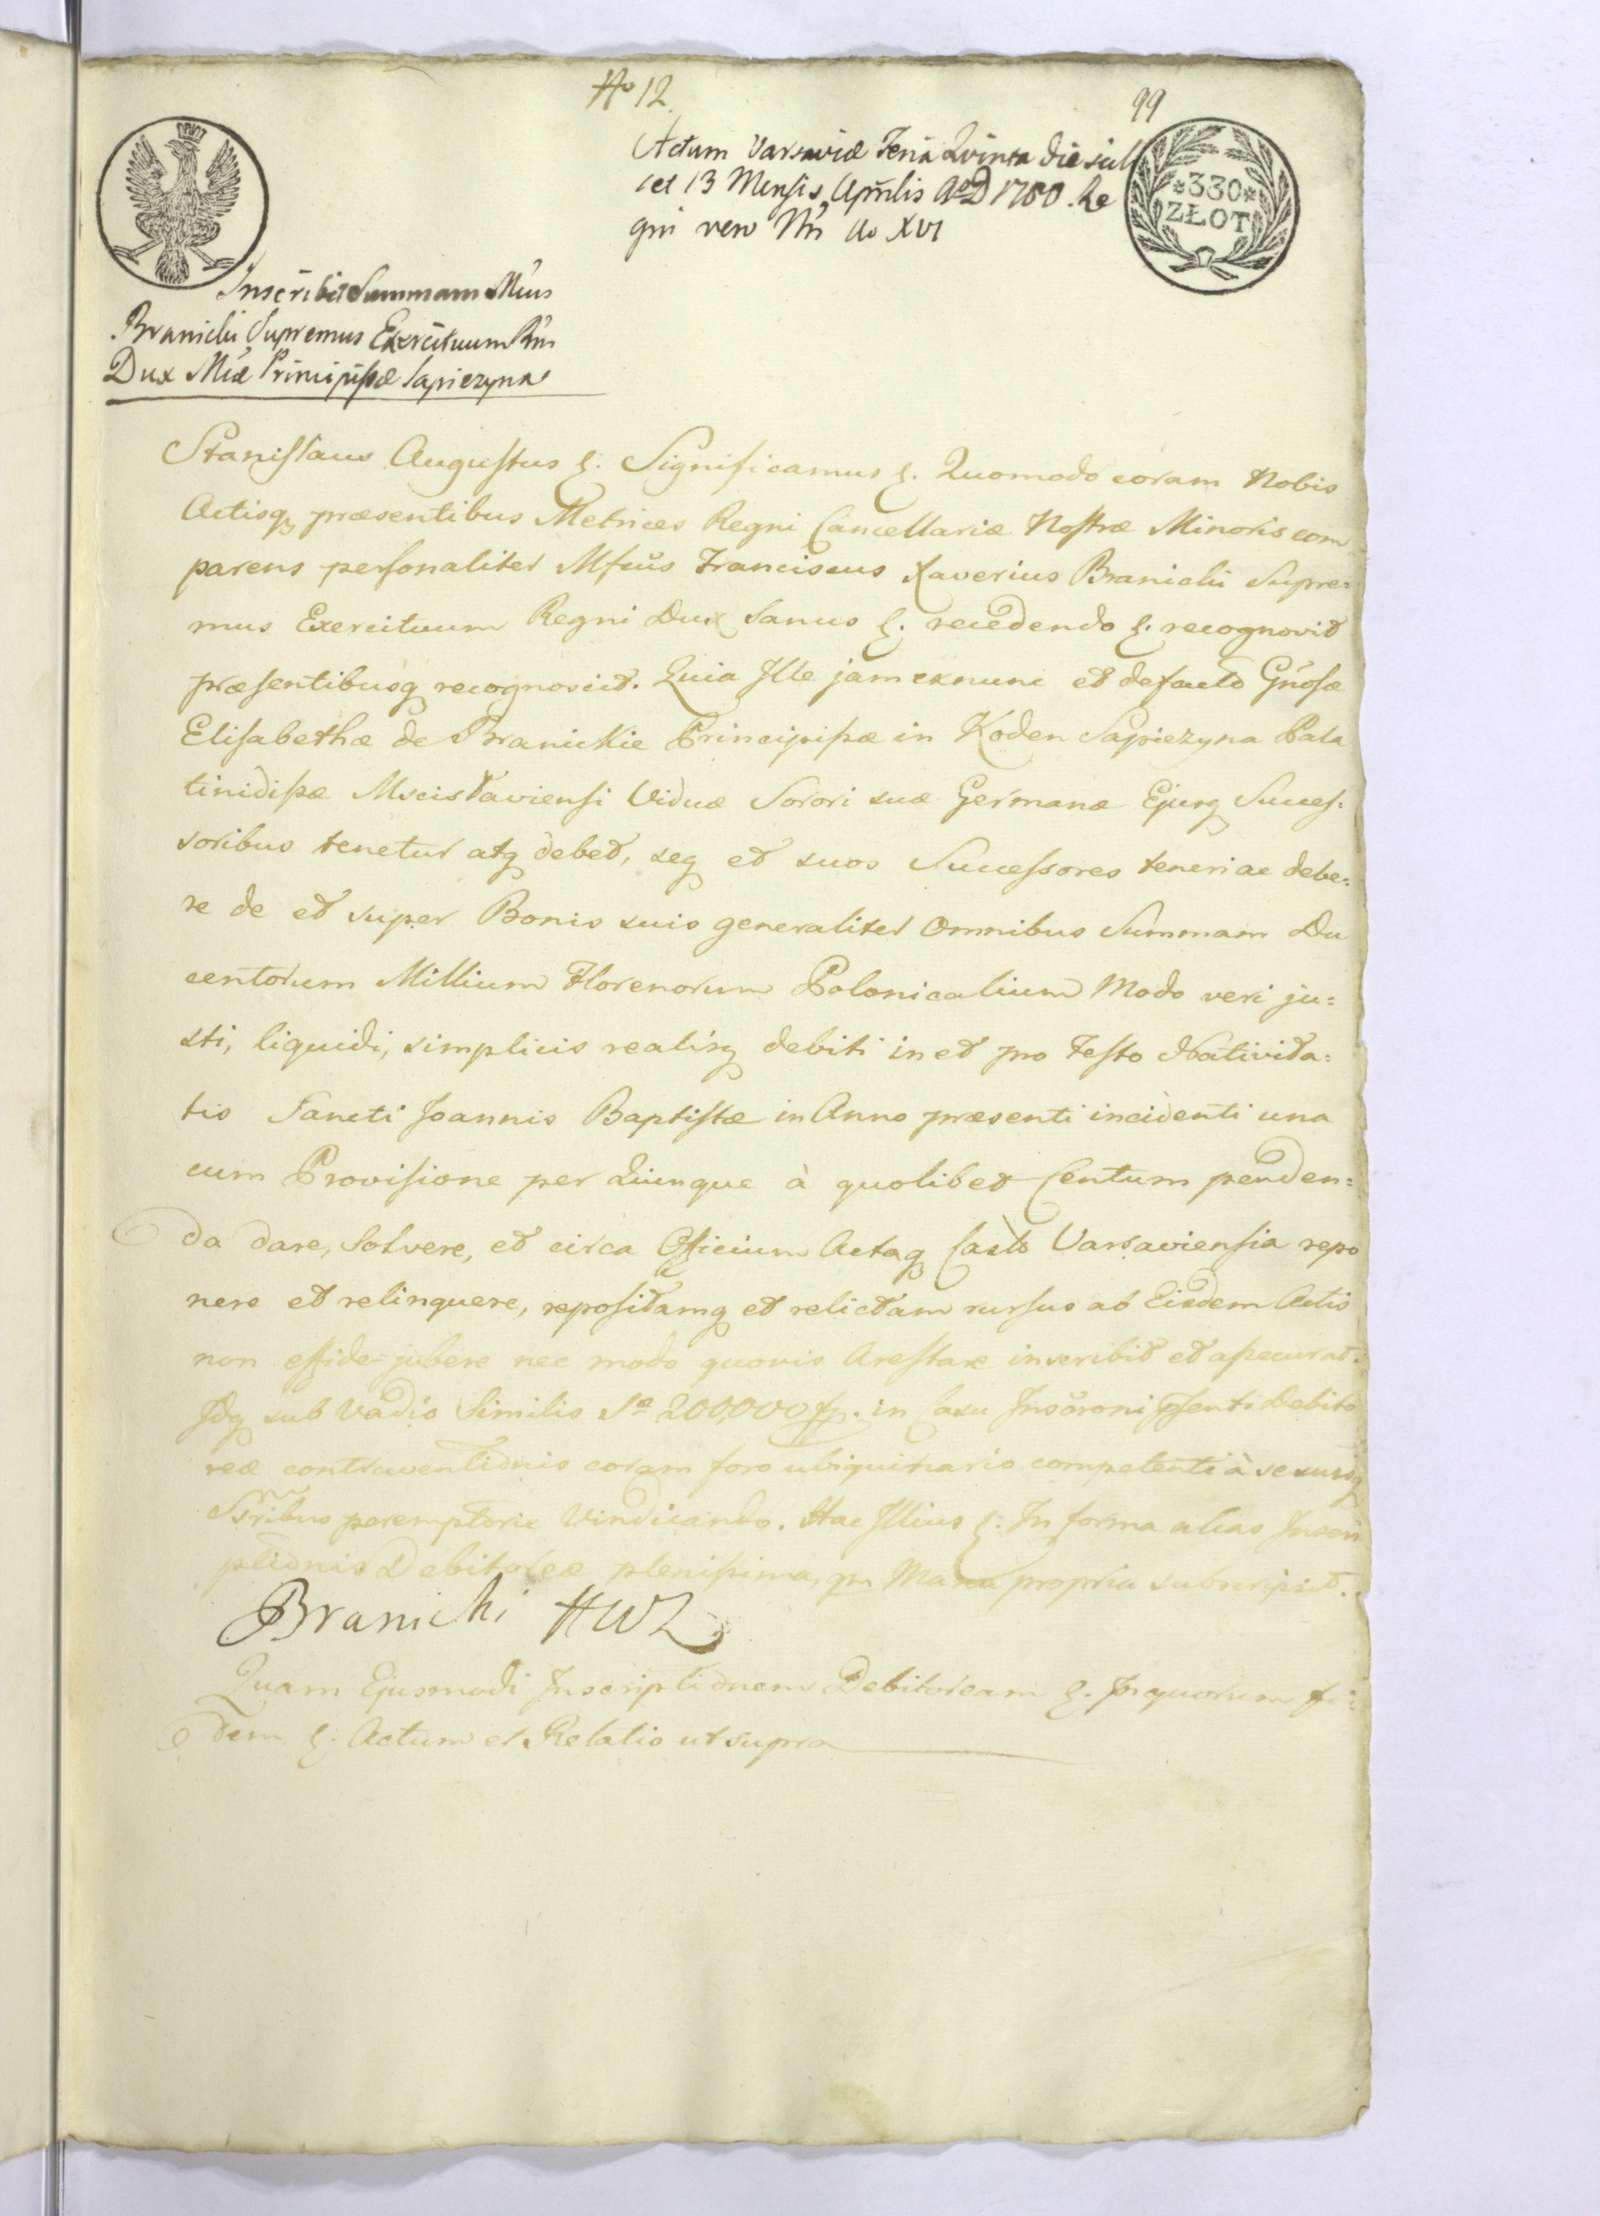 No 12
99
Actum Varsaviæ Feria Qvinta die scili
cet 13 Mensis Aprilis AoD 1780. Re
gni vero Nri Ao XVI
*330*
ZŁOT
Inscribit Summam Mcus
Branicki Supremus Exercituum Rni
Dux Mcæ Principissæ Sapiezyna
Stanislaus Augustus &. Significamus &. Quomodo coram Nobis
Actisq præsentibus Metrices Regni Cancellariæ Nostræ Minoris com
parens personaliter Mfcus Franciscus Xaverius Branicki Supre=
mus Exercituum Regni Dux Sanus &. recedendo &. recognovit
præsentibusq recognoscit. Quia Ille jam exnunc et defacto Gnosæ
Elisabethæ de Branickie Principissæ in Koden Sapiezyna Pala
tinidissæ Mscislaviensi Viduæ Sorori suæ Germanæ Ejusq Succes=
soribus tenetur atq debet, seq et suos Successores teneri ac debe=
re de et super Bonis suis generaliter Omnibus Summam Du
centorum Millium Florenorum Polonicalium Modo veri ju=
sti, liquidi, simplicis realisq debiti in et pro Festo Nativita=
tis Sancti Joannis Baptistæ in Anno præsenti incidenti una
cum Provisione per Quinque à quolibet Centum penden=
da dare, solvere, et circa Officium Actaq Castr Varsaviensia repo
nere et relinquere, repositamq et relictam rursus ab Eisdem Actis
non effide=jubere nec modo quovis Arestare inscribit et assecurat.
Idq sub Vadio Similis Sæ 200,000 f. in Casu Inscroni Psenti Debito
reæ contraventionis coram foro ubiquinario competenti à se suisq
Ssribus peremptorie Vindicando. Hac Illius &. In forma alias Inscri
ptionis Debitoreæ plenissima, qm Manu propria subscripsit.
Branicki HWK
Quam Ejusmodi Inscriptionem Debitoream &. In quorum fi=
dem &. Actum et Relatio ut supra